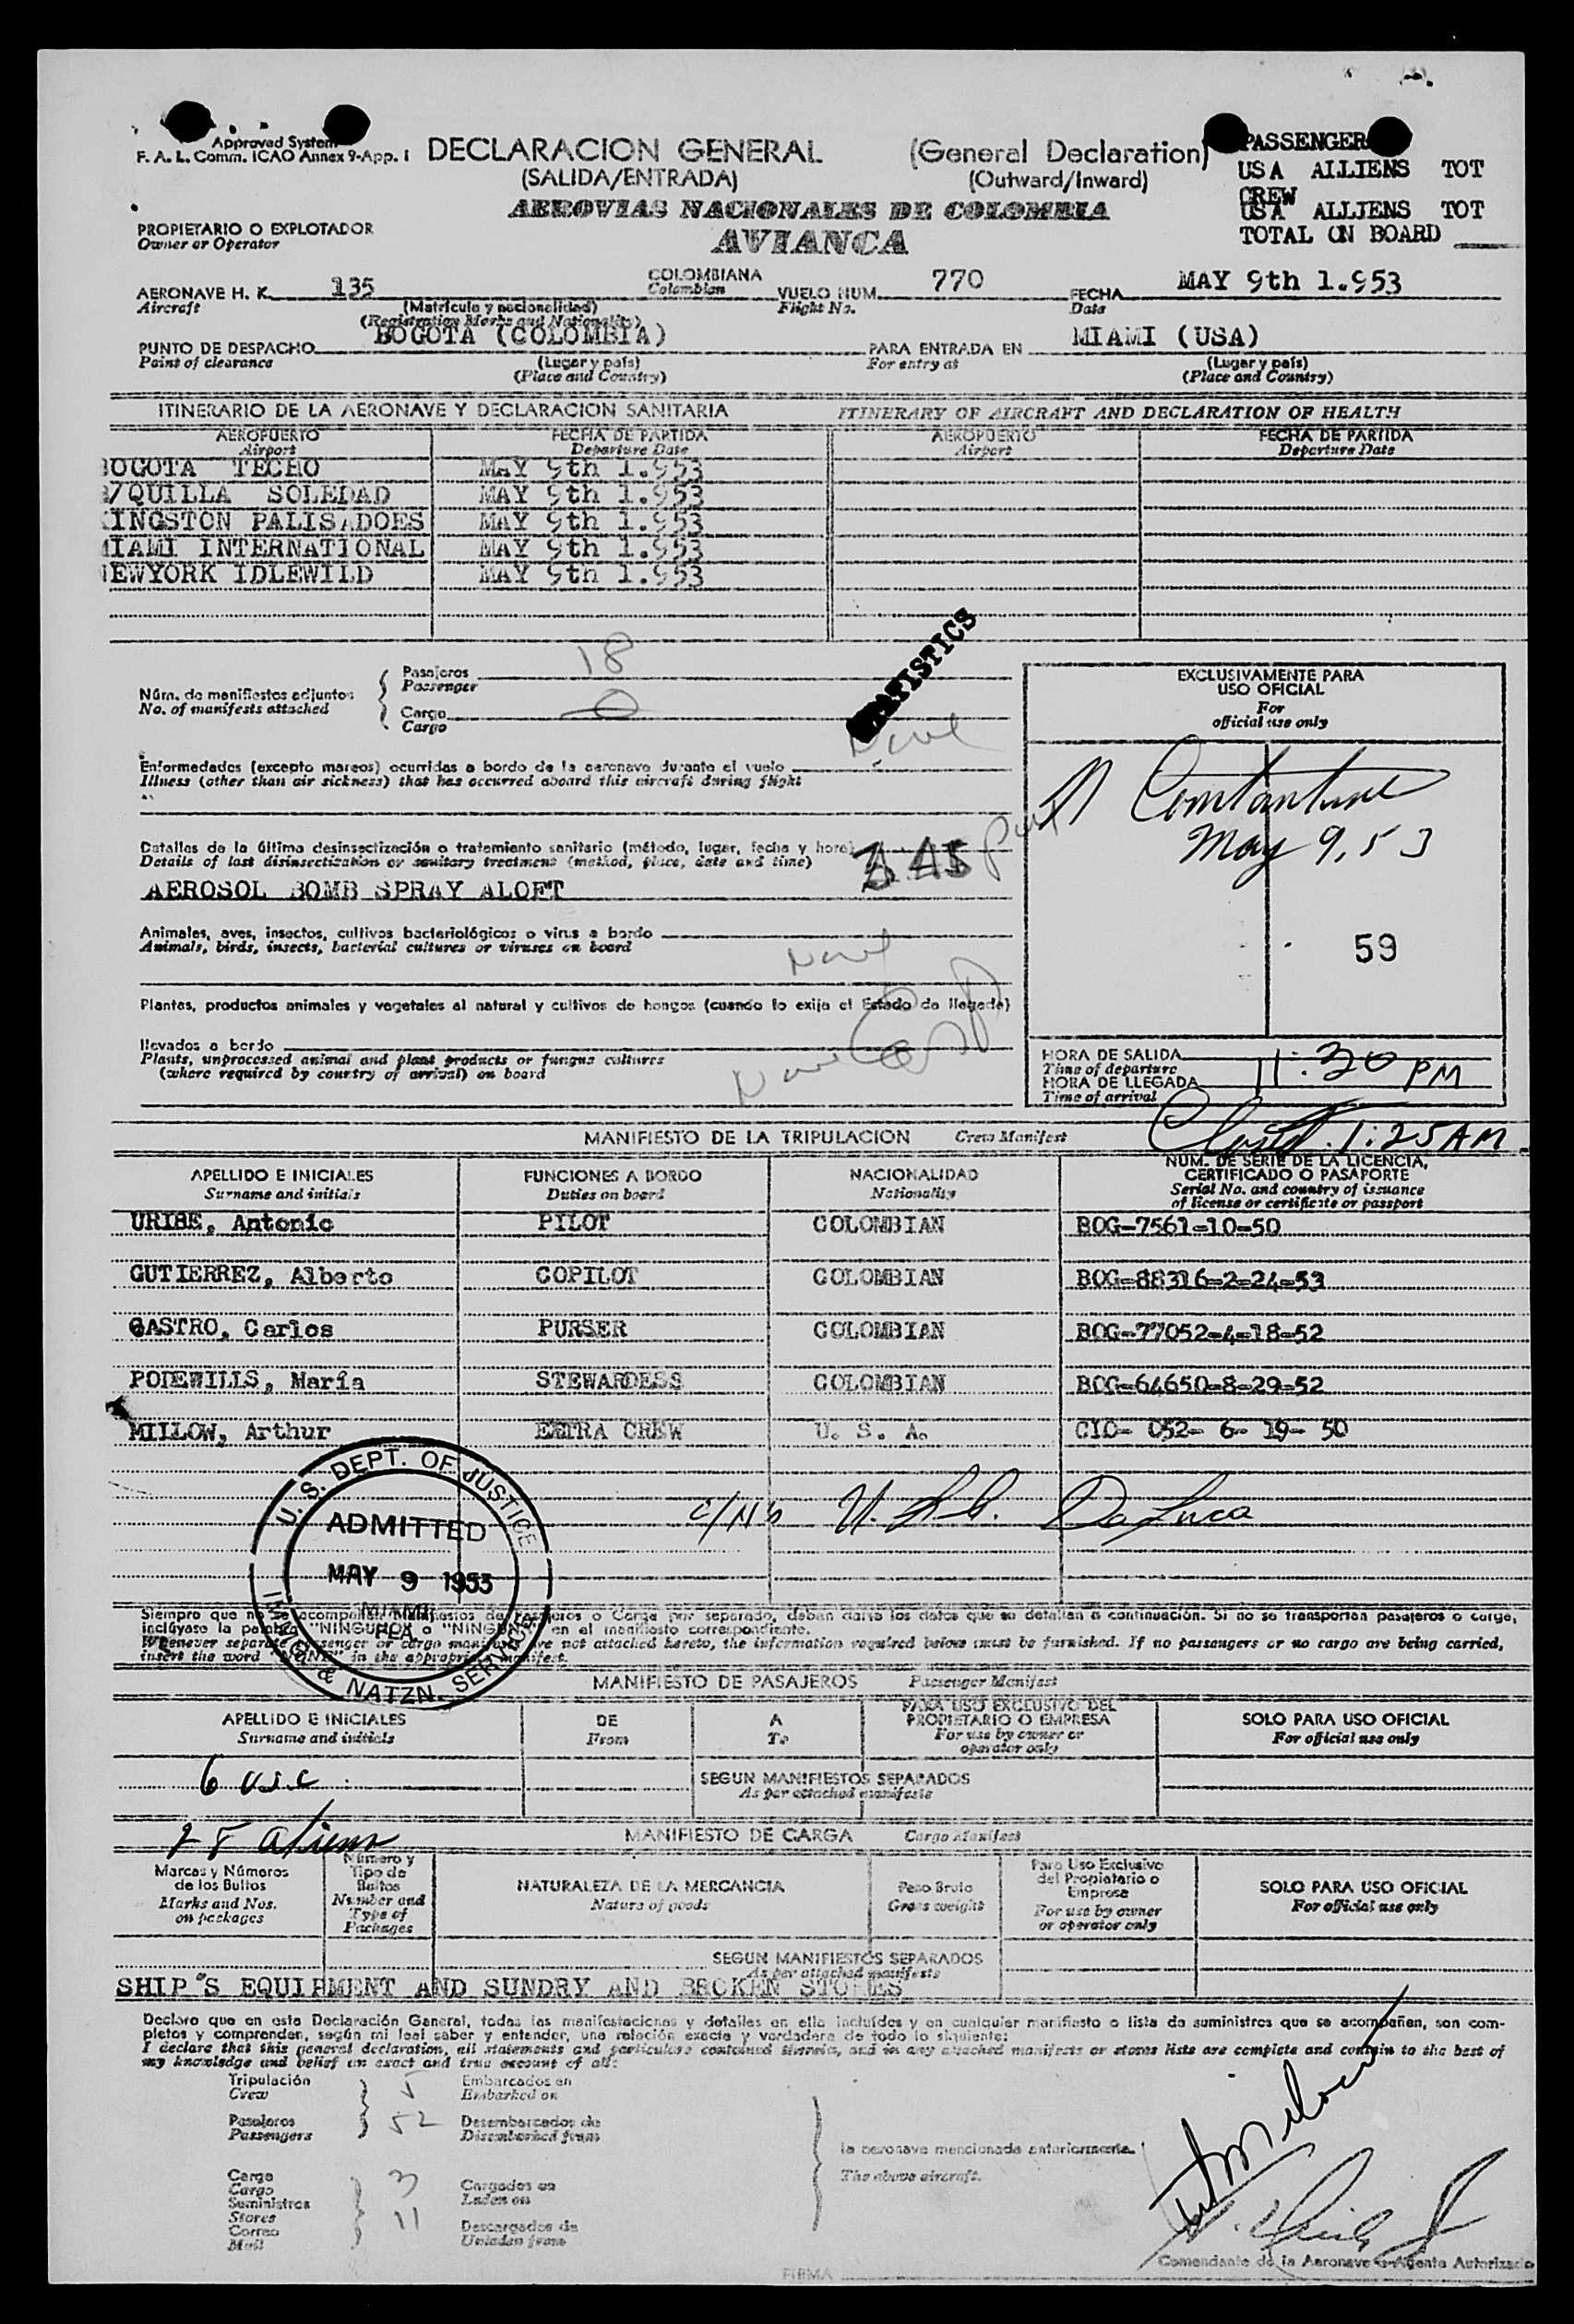 Approved System
F. A. L. Comm. ICAO Annex 9-App. I
DECLARACION GENERAL (General Declaration)
(SALIDA/ENTRADA) (Outward/Inward)
PASSENGER
USA ALLIENS TOT
CREW
USA ALLIENS TOT
TOTAL ON BOARD
AEROVIAS NACIONALES DE COLOMBIA
AVIANCA
PROPIETARIO O EXPLOTADOR
Owner or Operator
AERONAVE H. K. 135 COLOMBIANA VUELO NUM. 770 FECHA MAY 9th 1.953
Aircraft Colombian Flight No. Date
(Matrícula y nacionalidad)
(Registration Marks and Nationality)
PUNTO DE DESPACHO BOGOTA (COLOMBIA) PARA ENTRADA EN MIAMI (USA)
Point of clearance For entry at
(Lugar y país) (Lugar y país)
(Place and Country) (Place and Country)
ITINERARIO DE LA AERONAVE Y DECLARACION SANITARIA ITINERARY OF AIRCRAFT AND DECLARATION OF HEALTH
AEROPUERTO FECHA DE PARTIDA AEROPUERTO FECHA DE PARTIDA
Airport Departure Date Airport Departure Date
OGOTA TECHO MAY 9th 1.953
/QUILLA SOLEDAD MAY 9th 1.953
KINGSTON PALISADOES MAY 9th 1.953
MIAMI INTERNATIONAL MAY 9th 1.953
NEWYORK IDLEWILD MAY 9th 1.953
STATISTICS
Núm. de manifiestos adjuntos
No. of manifests attached
Pasajeros 18
Passenger
Cargo 0
Cargo
Enfermedades (excepto mareos) ocurridas a bordo de la aeronave durante el vuelo
Illness (other than air sickness) that has occurred aboard this aircraft during flight
Detalles de la última desinsectización o tratamiento sanitario (método, lugar, fecha y hora)
Details of last disinsectization or sanitary treatment (method, place, date and time)
AEROSOL BOMB SPRAY ALOFT
Animales, aves, insectos, cultivos bacteriológicos o virus a bordo
Animals, birds, insects, bacterial cultures or viruses on board
Plantas, productos animales y vegetales al natural y cultivos de hongos (cuando lo exija el Estado de llegada)
llevados a bordo
Plants, unprocessed animal and plant products or fungus cultures
(where required by country of arrival) on board
EXCLUSIVAMENTE PARA
USO OFICIAL
For
official use only
Constantine
May 9, 53
59
HORA DE SALIDA
Time of departure
11:30 PM
HORA DE LLEGADA
Time of arrival
1:25 AM
MANIFIESTO DE LA TRIPULACION Crew Manifest
APELLIDO E INICIALES FUNCIONES A BORDO NACIONALIDAD NUM. DE SERIE DE LA LICENCIA,
CERTIFICADO O PASAPORTE
Surname and initials Duties on board Nationality Serial No. and country of issuance
of license or certificate or passport
URIBE, Antonio PILOT COLOMBIAN BOG-7561-10-50
GUTIERREZ, Alberto COPILOT COLOMBIAN BOG-88316-2-24-53
CASTRO, Carlos PURSER COLOMBIAN BOG-77052-4-18-52
PODEWILLS, María STEWARDESS COLOMBIAN BOG-64650-8-29-52
MILLOW, Arthur EXTRA CREW U. S. A. CIO- 052- 6- 19- 50
De Luca
U. S. DEPT. OF JUSTICE
ADMITTED
MAY 9 1953
MIAMI
FLA
IMMIG. & NATZN. SERVICE
Siempre que no se acompañen Manifiestos de Pasajeros o Carga por separado, deben darse los datos que se detallan a continuación. Si no se transportan pasajeros o carga,
inclúyase la palabra "NINGUNO" o "NINGUNA" en el manifiesto correspondiente.
Whenever separate passenger or cargo manifests are not attached hereto, the information required below must be furnished. If no passengers or no cargo are being carried,
insert the word "NONE" in the appropriate manifest.
MANIFIESTO DE PASAJEROS Passenger Manifest
APELLIDO E INICIALES DE A PARA USO EXCLUSIVO DEL
PROPIETARIO O EMPRESA SOLO PARA USO OFICIAL
Surname and initials From To For use by owner or
operator only For official use only
6 usc
SEGUN MANIFIESTOS SEPARADOS
As per attached manifests
aliens
MANIFIESTO DE CARGA Cargo Manifest
Marcas y Números
de los Bultos
Marks and Nos.
on packages
Número y
Tipo de
Bultos
Number and
Type of
Packages
NATURALEZA DE LA MERCANCIA
Nature of goods
Peso Bruto
Gross weight
Para Uso Exclusivo
del Propietario o
Empresa
For use by owner
or operator only
SOLO PARA USO OFICIAL
For official use only
SEGUN MANIFIESTOS SEPARADOS
As per attached manifests
SHIP'S EQUIPMENT AND SUNDRY AND BROKEN STORES
Declaro que en esta Declaración General, todas las manifestaciones y detalles en ella incluídos y en cualquier manifiesto o lista de suministros que se acompañen, son com-
pletos y comprenden, según mi leal saber y entender, una relación exacta y verdadera de todo lo siguiente:
I declare that this general declaration, all statements and particulars contained therein, and in any attached manifests or stores lists are complete and contain to the best of
my knowledge and belief an exact and true account of all:
Tripulación 5 Embarcados en
Crew Embarked on
Pasajeros 52 Desembarcados de
Passengers Disembarked from
la aeronave mencionada anteriormente.
The above aircraft.
Carga 3 Cargados en
Cargo Laden on
Suministros
Stores 11
Correo Descargados de
Mail Unladen from
FIRMA
Comandante de la Aeronave o Agente Autorizado